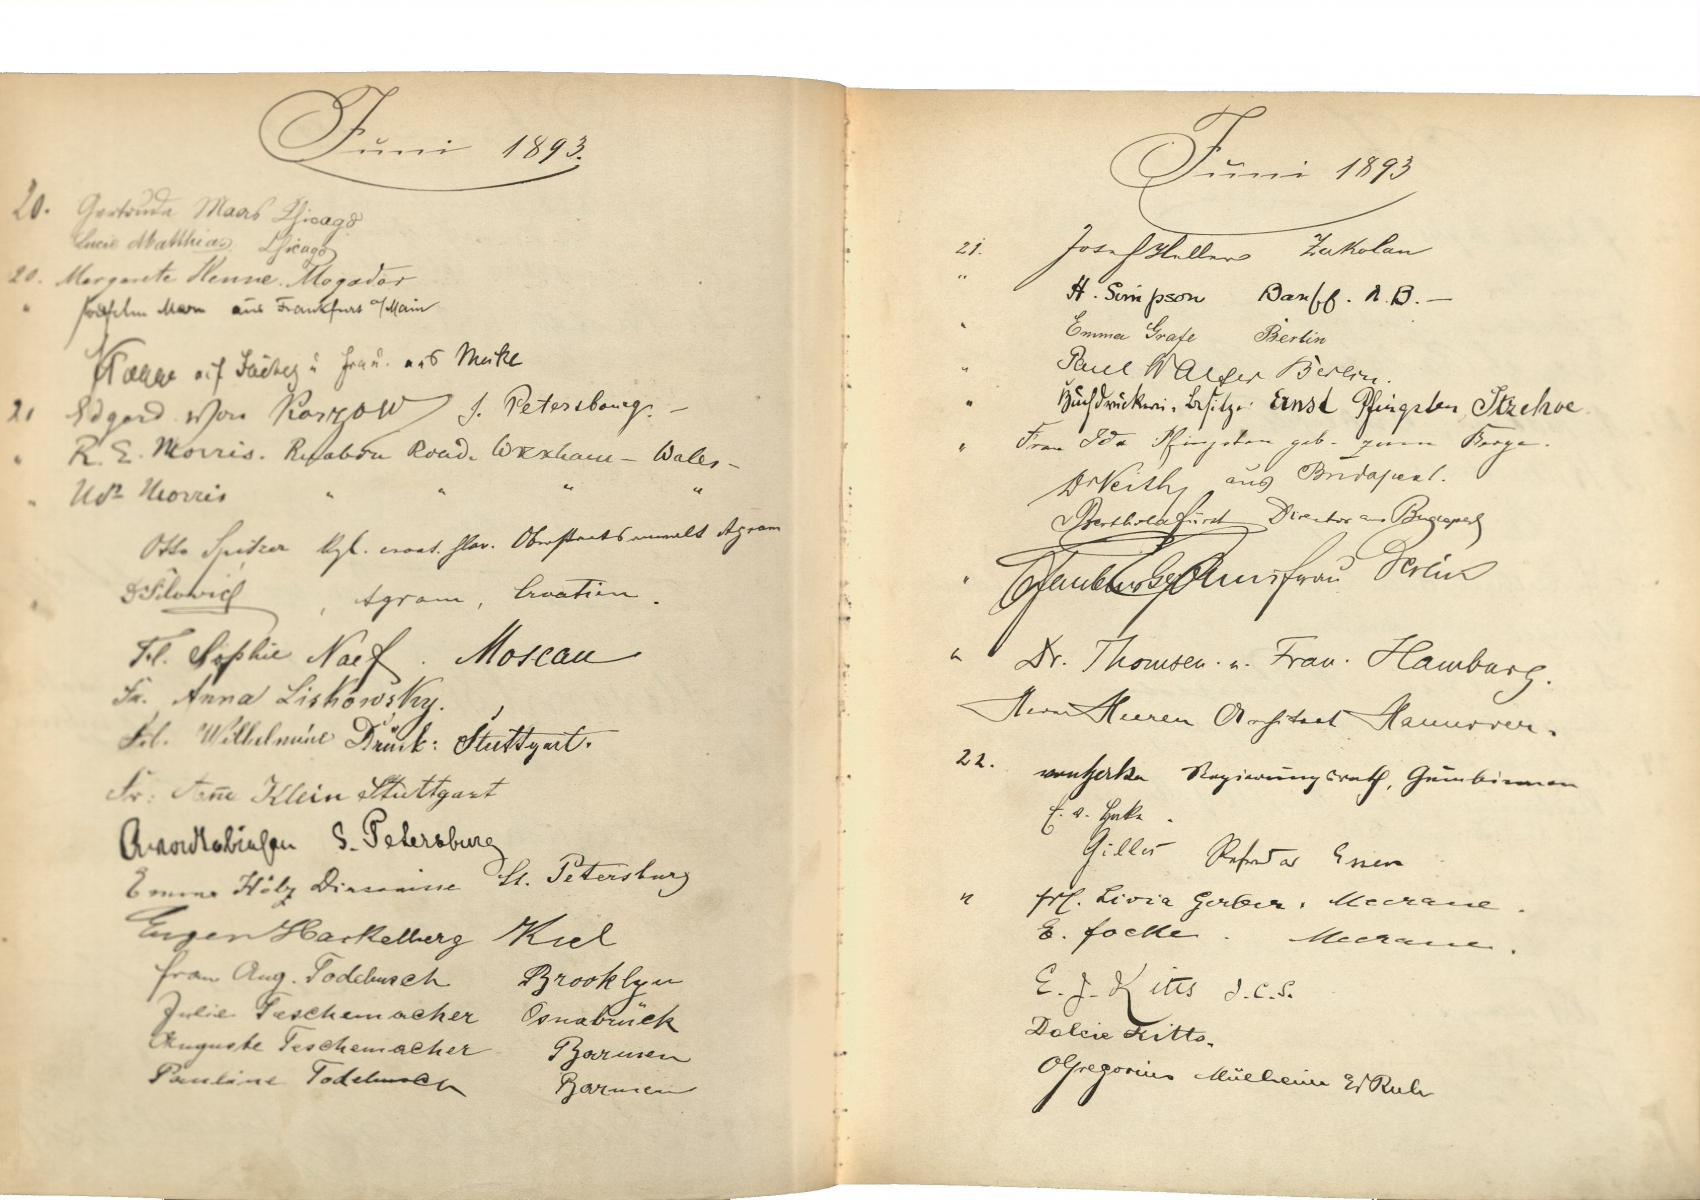 Juni 1893.
20. Gertrude Maas Chicago
Lucie Matthias Chicago
20. Margarete Henne. Mogador
" aus Frankfurt a/Main
u. Frau. aus
21 Edgard von S. Petersbourg. -
" R. E. Morris. Ruabon Road. Wrexham - Wales -
" Morris " " " "
Otto Spitzer Kgl. croat. slav. Oberstaatsanwalt Agram
" , Agram, Croatien.
Frl. Sophie Naef. Moscau
Fr. Anna Liskowsky.
Frl. Wilhelmine Drück: Stuttgart.
Fr: Klein Stuttgart
S. Petersburg
Emma Hölz St. Petersburg
Eugen Harkelberg Kiel
Frau Aug. Todebusch Brooklyn
Julie Teschemacher Osnabrück
Auguste Teschemacher Barmen
Pauline Todebusch Barmen
Juni 1893
21. Josef Heller Zakolan
" H. Simpson Banff. N.B. —
" Emma Grafe Berlin
" Paul Berlin.
" Buchdruckerei-Besitzer Ernst Pfingsten, Itzehoe
" Frau Ida Pfingsten geb. zum Berge.
aus Budapest.
Berthold Fürst Director aus Budapest
" Berlin
" Dr. Thomsen. u. Frau. Hamburg.
Heeren Architect Hannover.
22. Regierungsrath, Gumbinnen
E. v.
Gilles Referendar Essen
" Frl. Livia Gerber, Meerane.
E. Focke. Meerane.
E. J. Kitts I.C.S.
Dolcie Kitts.
Gregorius Mülheim Ruhr